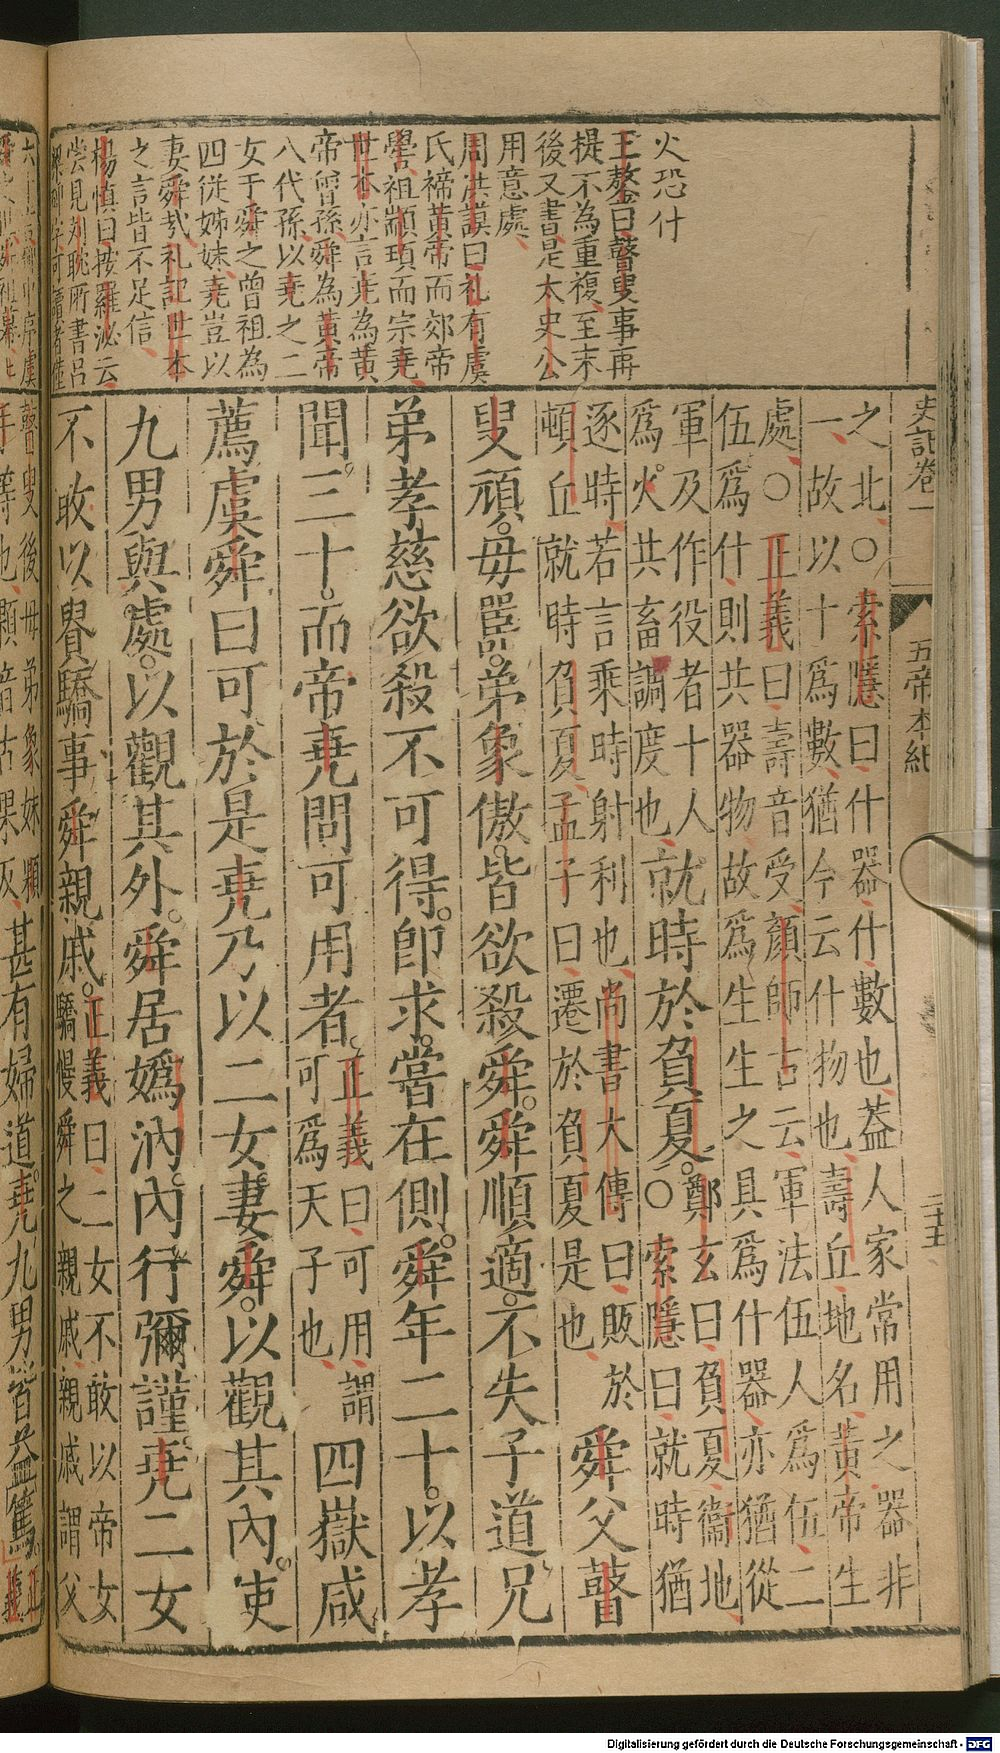 史記卷一
五帝本紀
二十五
火恐什
王鏊曰瞽叟事再
提不為重複至末
後又書是太史公
用意處
周洪謨曰禮有虞
氏禘黃帝而郊帝
嚳祖顓頊而宗堯
世本亦言堯為黃
帝曾孫舜為黃帝
八代孫以堯之二
女于舜之曾祖為
四從姊妹堯豈以
妻舜哉禮記世本
之言皆不足信
楊慎曰按羅泌云
甞見劉耽所書呂
之北○索隱曰什器什數也蓋人家常用之器非
一故以十爲數猶今云什物也壽丘地名黃帝生
處○正義曰壽音受顏師古云軍法伍人爲伍二
伍爲什則共器物故爲生生之具爲什器亦猶從
軍及作役者十人
爲火共畜調度也就時於負夏鄭玄曰負夏衞地
○索隱曰就時猶
逐時若言乘時射利也尚書大傳曰販於
頓丘就時負夏孟子曰遷於負夏是也舜父瞽
叟頑毋嚚弟象傲皆欲殺舜舜順適不失子道兄
弟孝慈欲殺不可得卽求嘗在側舜年二十以孝
聞三十而帝堯問可用者正義曰可用謂
可爲天子也四嶽咸
薦虞舜曰可於是堯乃以二女妻舜以觀其內使
九男與處以觀其外舜居嬀汭內行彌謹堯二女
不敢以貴驕事舜親戚正義曰二女不敢以帝女
驕慢舜之親戚親戚謂父
瞽叟後母弟象妹顆
手等也顆音苦果反甚有婦道堯九男皆益篤正
義
Digitalisierung gefördert durch die Deutsche Forschungsgemeinschaft - DFG